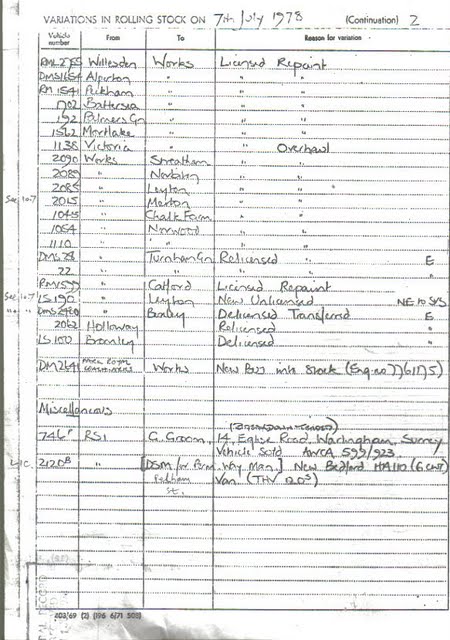 VARIATIONS IN ROLLING STOCK ON 7th July 1978 (Continuation) 2
Vehicle number From To Reason for variation
RML2755 Willesden Works Licensed Repaint
DMS1654 Alperton " " "
RM1541 Peckham " " "
1702 Battersea " " "
192 Palmers Gn " " "
1562 Mortlake " " "
1138 Victoria " " Overhaul
2090 Works Streatham " "
2089 " Norbiton " "
2085 " Leyton " "
2015 " Merton " "
1045 " Chalk Farm " "
1054 " Norwood " "
1110 " " " "
DMS28 " Turnham Gn Relicensed " E
22 " " " " "
RM1577 " Catford Licensed Repaint
Sec 10.7 LS190 " Leyton New Unlicensed NE to S/S
" " DMS2480 " Bexley Delicensed Transferred E
2062 Holloway Relicensed "
LS100 Bromley Delicensed "
DM2541 Works New Bus into Stock (Eng. no 7761175)
Miscellaneous
(Breakdown Tender)
746F RSI G. Groom, 14, Eglise Road, Warlingham, Surrey
Vehicle Sold AWCA 599/923.
2120B " [DSM for Perm. Way Man.] New Bedford HA110 (6 cwt)
Fulham Van (THV 203)
St.
403/69 (2) (196 6/71 503)